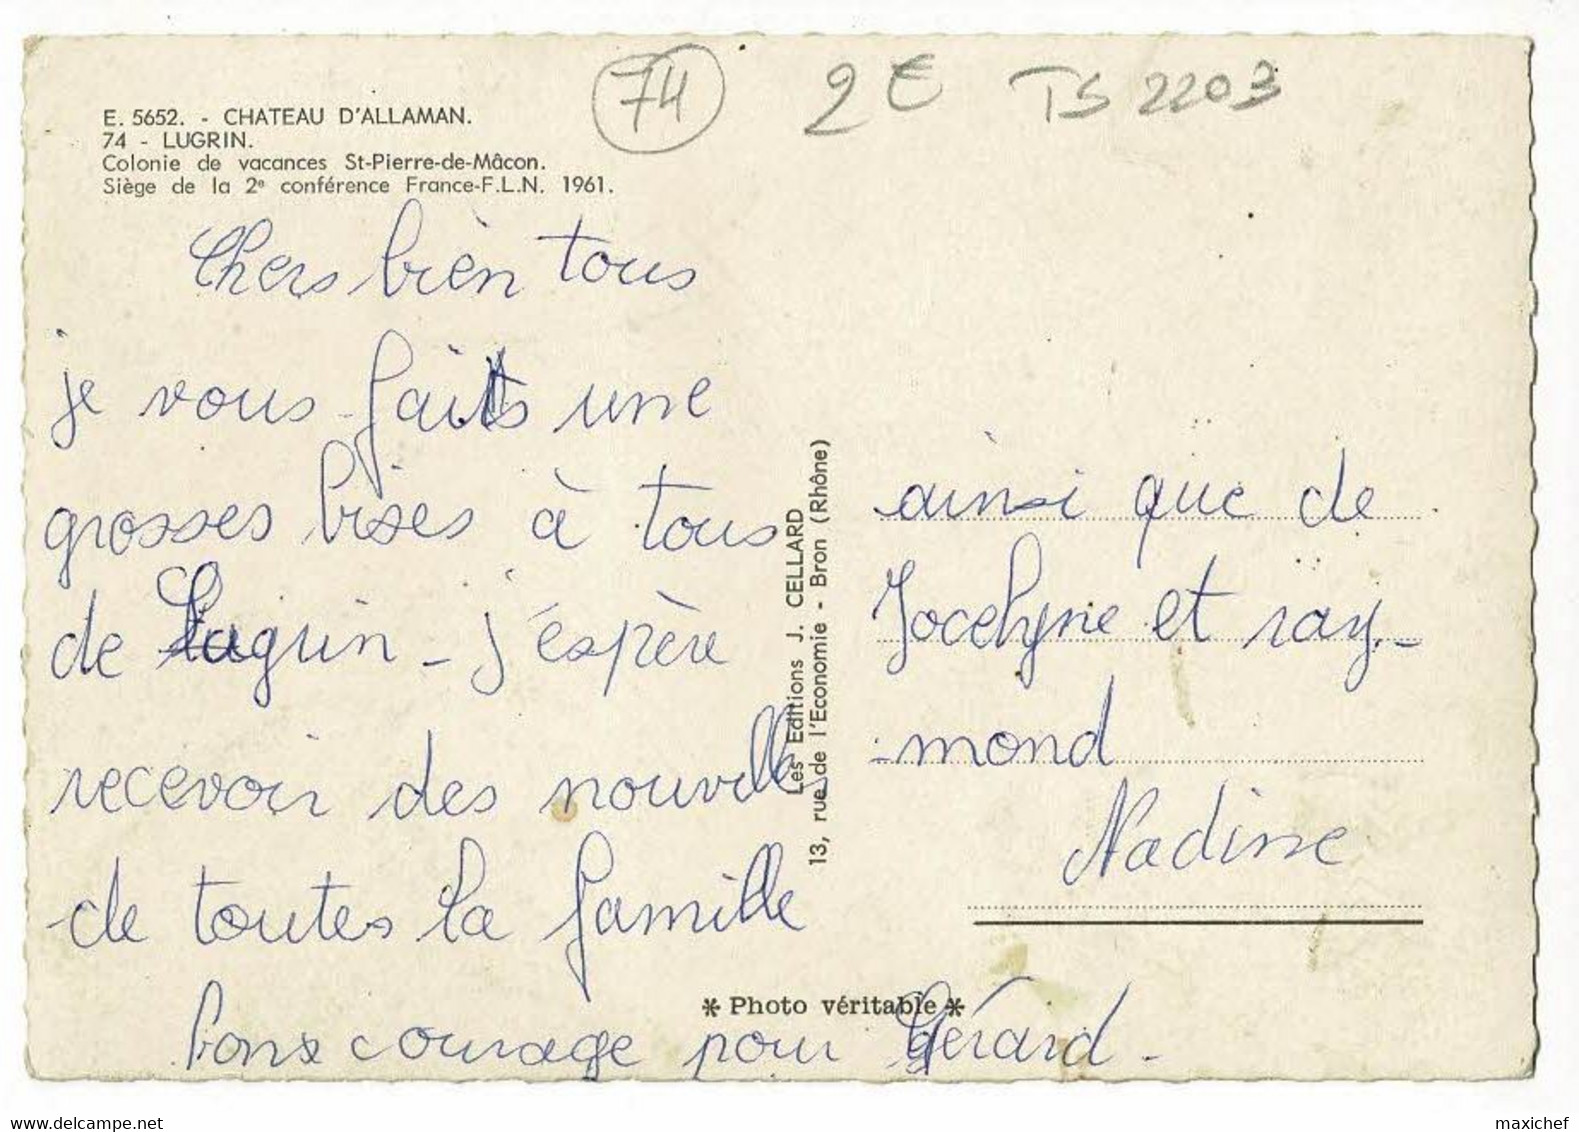 E. 5652. - CHATEAU D'ALLAMAN.
74 - LUGRIN.
Colonie de vacances St-Pierre-de-Mâcon.
Siège de la 2e conférence France-F.L.N. 1961.
74
2 € TS 2203
Chers bièn tous
je vous faits une
grosses bises à tous
de Lugrin - j'éspère
recevoir des nouvelles
de toutes la famille
bons courage pour Gérard -
Les Editions J. CELLARD
13, rue de l'Economie - Bron (Rhône)
ainsi que de
Jocelyne et ray-
-mond
Nadine
* Photo véritable *
www.delcampe.net
maxichef